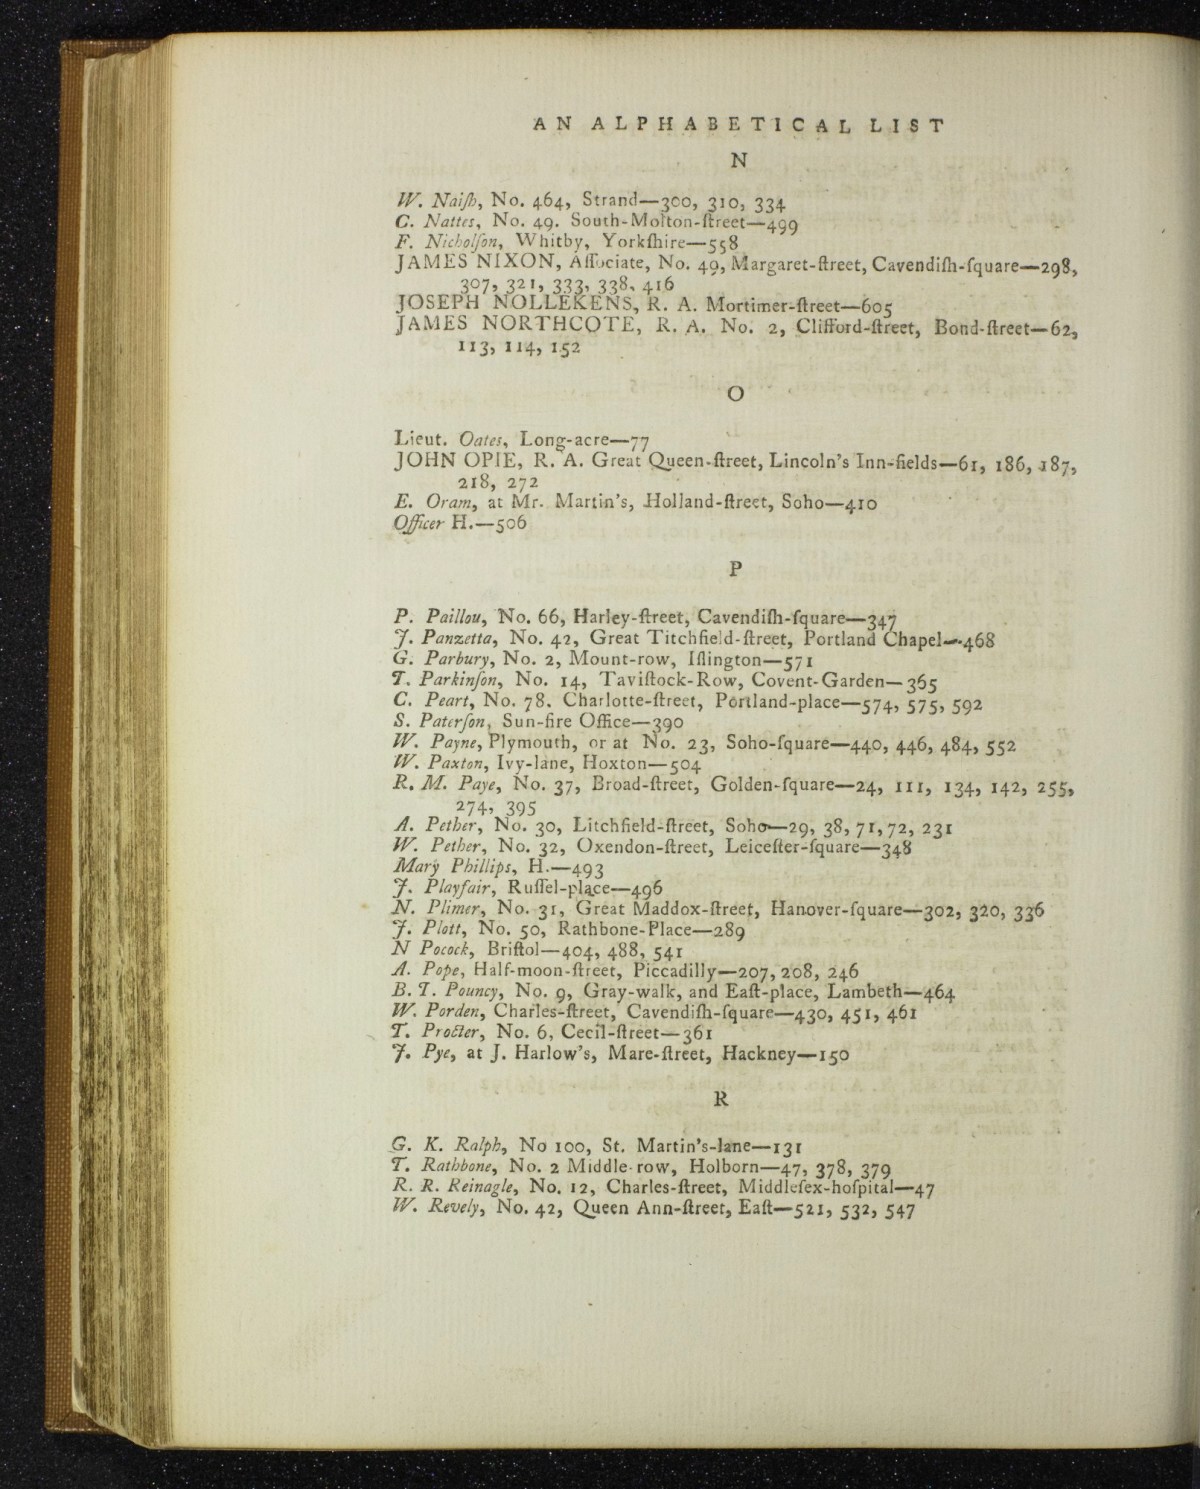 AN ALPHABETICAL LIST
N
W. Naiſh, No. 464, Strand—300, 310, 334
C. Nattes, No. 49. South-Molton-ſtreet—499
F. Nicholſon, Whitby, Yorkſhire—558
JAMES NIXON, Aſſociate, No. 49, Margaret-ſtreet, Cavendiſh-ſquare—298,
307, 321, 333, 338, 416
JOSEPH NOLLEKENS, R. A. Mortimer-ſtreet—605
JAMES NORTHCOTE, R. A. No. 2, Clifford-ſtreet, Bond-ſtreet—62,
113, 114, 152
O
Lieut. Oates, Long-acre—77
JOHN OPIE, R. A. Great Queen-ſtreet, Lincoln's Inn-fields—61, 186, 187,
218, 272
E. Oram, at Mr. Martin's, Holland-ſtreet, Soho—410
Officer H.—506
P
P. Paillou, No. 66, Harley-ſtreet, Cavendiſh-ſquare—347
J. Panzetta, No. 42, Great Titchfield-ſtreet, Portland Chapel—468
G. Parbury, No. 2, Mount-row, Iſlington—571
T. Parkinſon, No. 14, Taviſtock-Row, Covent-Garden—365
C. Peart, No. 78. Charlotte-ſtreet, Portland-place—574, 575, 592
S. Paterſon, Sun-fire Office—390
W. Payne, Plymouth, or at No. 23, Soho-ſquare—440, 446, 484, 552
W. Paxton, Ivy-lane, Hoxton—504
R. M. Paye, No. 37, Broad-ſtreet, Golden-ſquare—24, 111, 134, 142, 255,
274, 395
A. Pether, No. 30, Litchfield-ſtreet, Soho—29, 38, 71, 72, 231
W. Pether, No. 32, Oxendon-ſtreet, Leiceſter-ſquare—348
Mary Phillips, H.—493
J. Playfair, Ruſſel-place—496
N. Plimer, No. 31, Great Maddox-ſtreet, Hanover-ſquare—302, 320, 336
J. Plott, No. 50, Rathbone-Place—289
N Pocock, Briſtol—404, 488, 541
A. Pope, Half-moon-ſtreet, Piccadilly—207, 208, 246
B. T. Pouncy, No. 9, Gray-walk, and Eaſt-place, Lambeth—464
W. Porden, Charles-ſtreet, Cavendiſh-ſquare—430, 451, 461
T. Procter, No. 6, Cecil-ſtreet—361
J. Pye, at J. Harlow's, Mare-ſtreet, Hackney—150
R
G. K. Ralph, No 100, St. Martin's-lane—131
T. Rathbone, No. 2 Middle-row, Holborn—47, 378, 379
R. R. Reinagle, No. 12, Charles-ſtreet, Middleſex-hoſpital—47
W. Revely, No. 42, Queen Ann-ſtreet, Eaſt—521, 532, 547